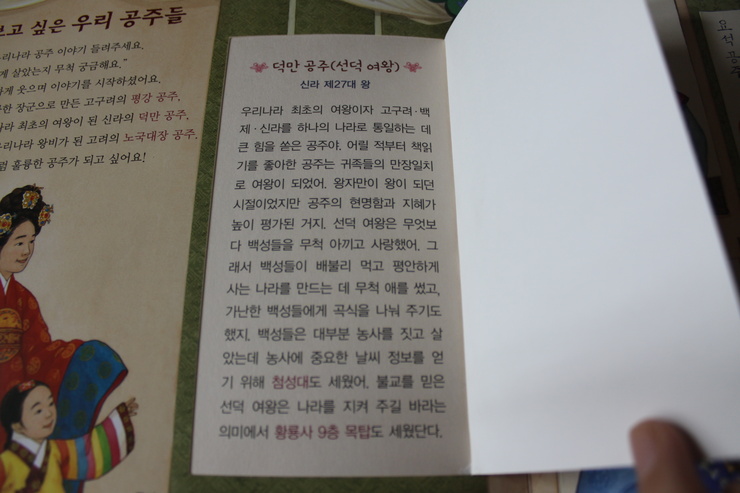 보고 싶은 우리 공주들
우리나라 공주 이야기 들려주세요.
게 살았는지 무척 궁금해요."
하게 웃으며 이야기를 시작하셨어요.
한 장군으로 만든 고구려의 평강 공주,
나라 최초의 여왕이 된 신라의 덕만 공주,
나라 왕비가 된 고려의 노국대장 공주,
럼 훌륭한 공주가 되고 싶어요!
덕만 공주(선덕 여왕)
신라 제27대 왕
우리나라 최초의 여왕이자 고구려·백
제·신라를 하나의 나라로 통일하는 데
큰 힘을 쏟은 공주야. 어릴 적부터 책읽
기를 좋아한 공주는 귀족들의 만장일치
로 여왕이 되었어. 왕자만이 왕이 되던
시절이었지만 공주의 현명함과 지혜가
높이 평가된 거지. 선덕 여왕은 무엇보
다 백성들을 무척 아끼고 사랑했어. 그
래서 백성들이 배불리 먹고 평안하게
사는 나라를 만드는 데 무척 애를 썼고,
가난한 백성들에게 곡식을 나눠 주기도
했지. 백성들은 대부분 농사를 짓고 살
았는데 농사에 중요한 날씨 정보를 얻
기 위해 첨성대도 세웠어. 불교를 믿은
선덕 여왕은 나라를 지켜 주길 바라는
의미에서 황룡사 9층 목탑도 세웠단다.
요석공주